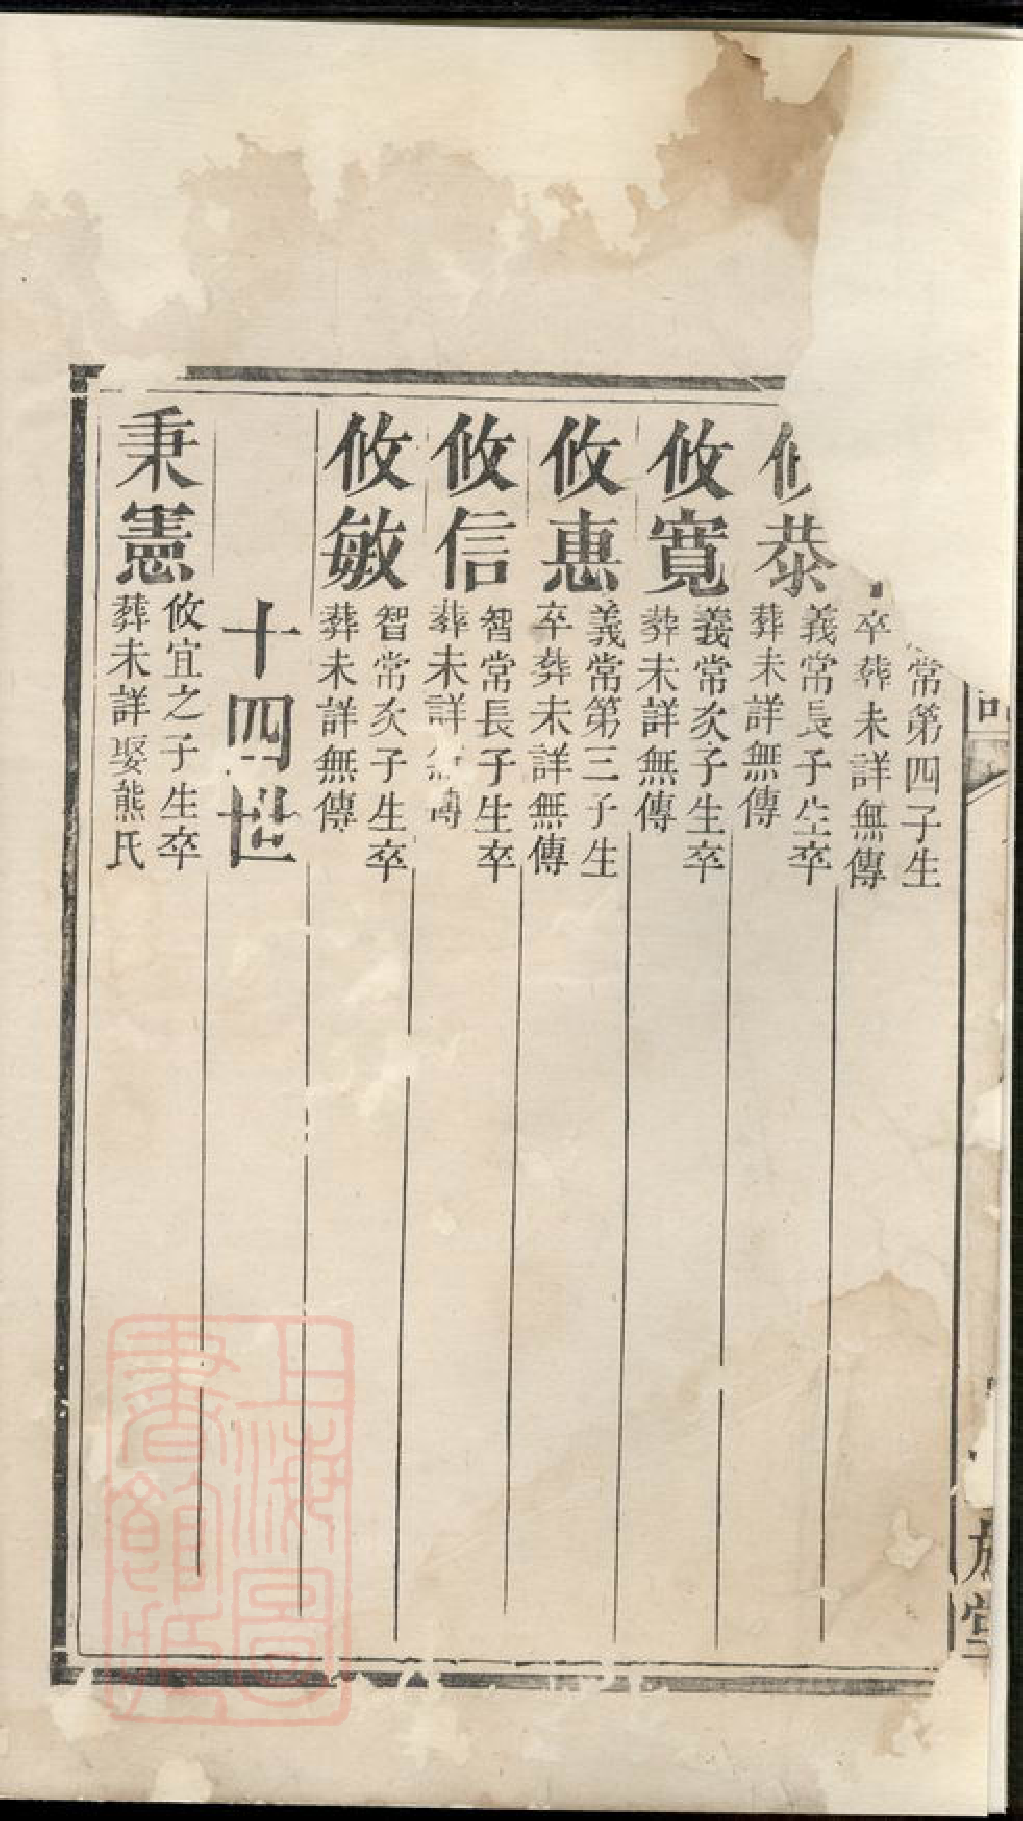 常第四子生
卒葬未詳無傳
恭
義常長子生卒
葬未詳無傳
攸寬
義常次子生卒
葬未詳無傳
攸惠
義常第三子生
卒葬未詳無傳
攸信
智常長子生卒
葬未詳無傳
攸敏
智常次子生卒
葬未詳無傳
十四世
秉憲
攸宜之子生卒
葬未詳娶熊氏
堂
上海圖
書館藏